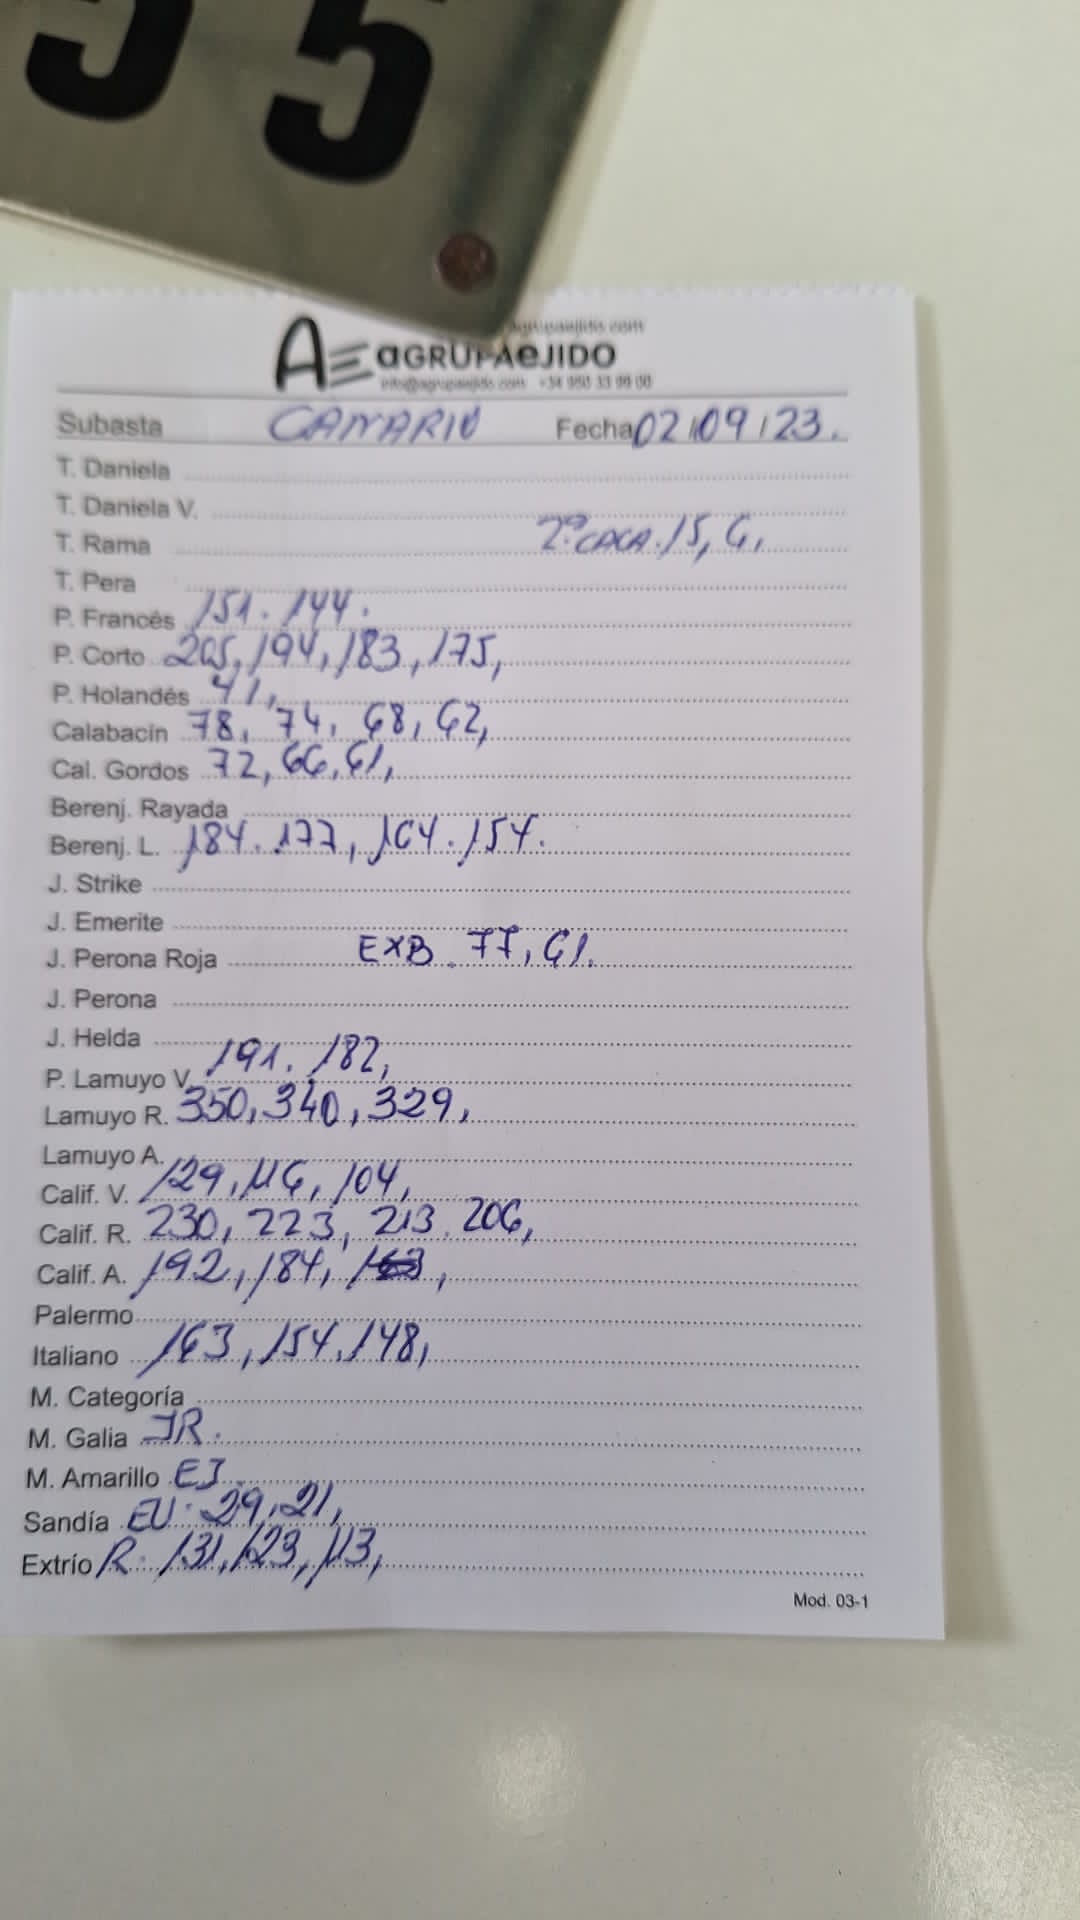 55
agrupaejido.com
AE aGRUPAeJIDO
info@agrupaejido.com +34 950 33 99 00
Subasta CANARIO Fecha 02/09/23.
T. Daniela
T. Daniela V.
T. Rama 2ª CACA. 15, 6,
T. Pera
P. Francés 151. 144.
P. Corto 205, 194, 183, 175,
P. Holandés 41,
Calabacín 78, 74, 68, 62,
Cal. Gordos 72, 66, 61,
Berenj. Rayada
Berenj. L. 184. 177, 164. 154.
J. Strike
J. Emerite
J. Perona Roja EXB. 77, 61.
J. Perona
J. Helda
P. Lamuyo V. 191. 182,
Lamuyo R. 350, 340, 329,
Lamuyo A.
Calif. V. 129, 116, 104,
Calif. R. 230, 223, 213. 206,
Calif. A. 192, 184,
Palermo
Italiano 163, 154, 148,
M. Categoría
M. Galia JR.
M. Amarillo EJ.
Sandía EU. 29, 21,
Extrío R. 131, 123, 113,
Mod. 03-1